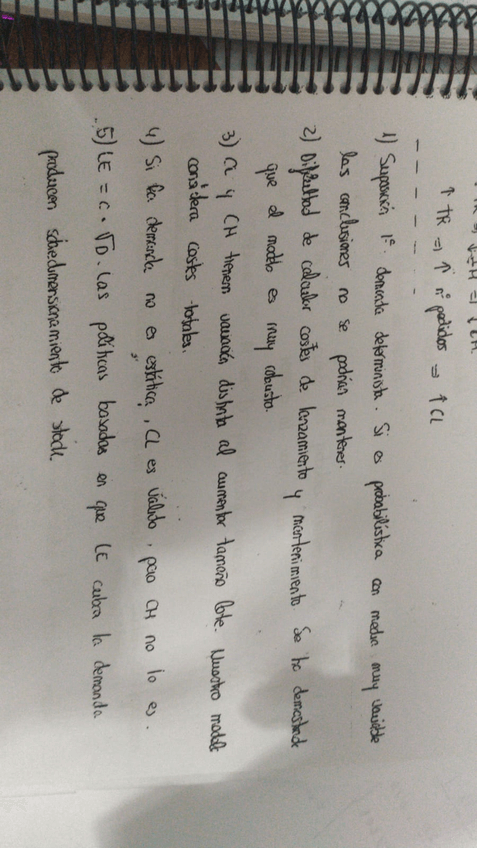 ↑ TR ⇒ ↑ nº pedidos ⇒ ↑ CL
1) Suposición 1º: demanda determinista. Si es probabilística con media muy variable
las conclusiones no se podrían mantener.
2) Dificultad de calcular costes de lanzamiento y mantenimiento Se ha demostrado
que el modelo es muy robusto.
3) CL y CH tienen variación distinta al aumentar tamaño lote. Nuestro modelo
considera costes totales.
4) Si la demanda no es estática, CL es válido, pero CH no lo es.
5) LE = c · √D. Las políticas basadas en que LE cubra la demanda
producen sobredimensionamiento de stock.